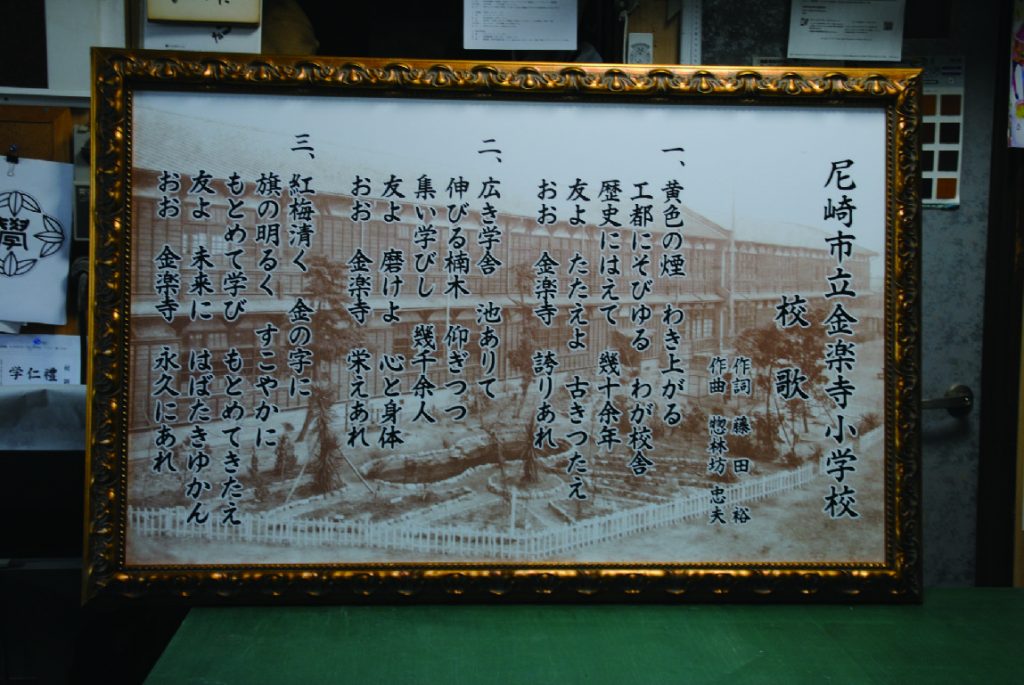 尼崎市立金楽寺小学校
校歌
作詞 藤田 裕
作曲 惣林坊 忠夫
一、
黄色の煙 わき上がる
工都にそびゆる わが校舎
歴史にはえて 幾十余年
友よ たたえよ 古きつたえ
おお 金楽寺 誇りあれ
二、
広き学舎 池ありて
伸びる楠木 仰ぎつつ
集い学びし 幾千余人
友よ 磨けよ 心と身体
おお 金楽寺 栄えあれ
三、
紅梅清く 金の字に
旗の明るく すこやかに
もとめて学び もとめてきたえ
友よ 未来に はばたきゆかん
おお 金楽寺 永久にあれ
學
学仁禮